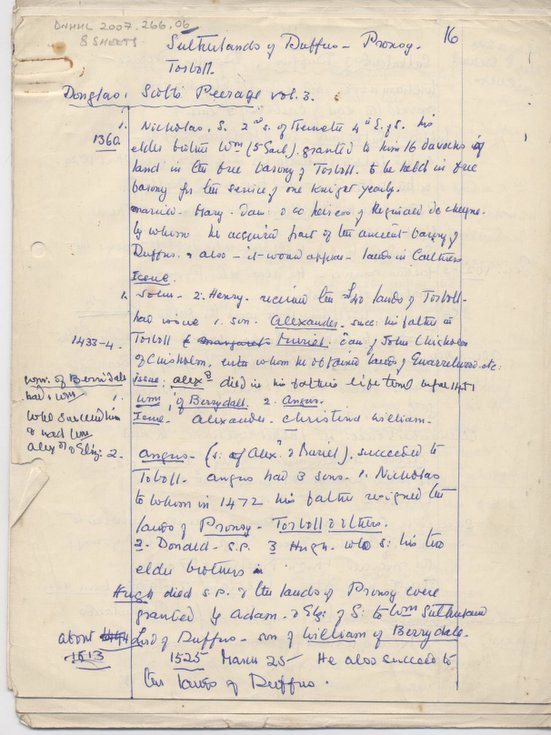 DNHHL 2007.266.06
8 SHEETS
16
Sutherlands of Duffus - Pronsy.
Torboll.
Douglas, Scots Peerage vol. 3.
1.
1360
Nicholas. S. 2nd s. of Kenneth 4th E. of S. his
elder brother Wm (5 Earl) granted to him 16 davochs of
land in the free barony of Torboll. to be held in free
barony for the service of one knight yearly.
married - Mary - dau: & co heiress of Reginald de Cheyne.
by whom he acquired part of the ancient barony of
Duffus. & also - it would appear - lands in Caithness
Issue.
1. John - 2. Henry - received the £40 lands of Torboll.
had issue 1. son. Alexander - succ: his father in
1433-4.
Torboll & Muriel: dau: of John Chisholm
of Chisholm, with whom he obtained lands of Quarrelwood. etc:
issue: Alexr died in his fathers lifetime
Wm of Berrydale had 1. Wm
who succeeded him
& had Wm
Alexr & Eliz:
1. Wm: of Berrydale. 2. Angus.
Issue. Alexander. Christina William.
2. Angus - (s: of Alexr & Muriel). succeeded to
Torboll. Angus had 3 sons - 1. Nicholas
to whom in 1472 his father resigned the
lands of Pronsy - Torboll & others.
2. Donald - S.P. 3 Hugh. who s: his two
elder brothers
Hugh died s.p. & the lands of Pronsy were
granted by Adam. & Eliz: of S: to Wm Sutherland
about
1513
Lord of Duffus - son of William of Berrydale.
1525 March 25 - He also succeeded to
the lands of Duffus.